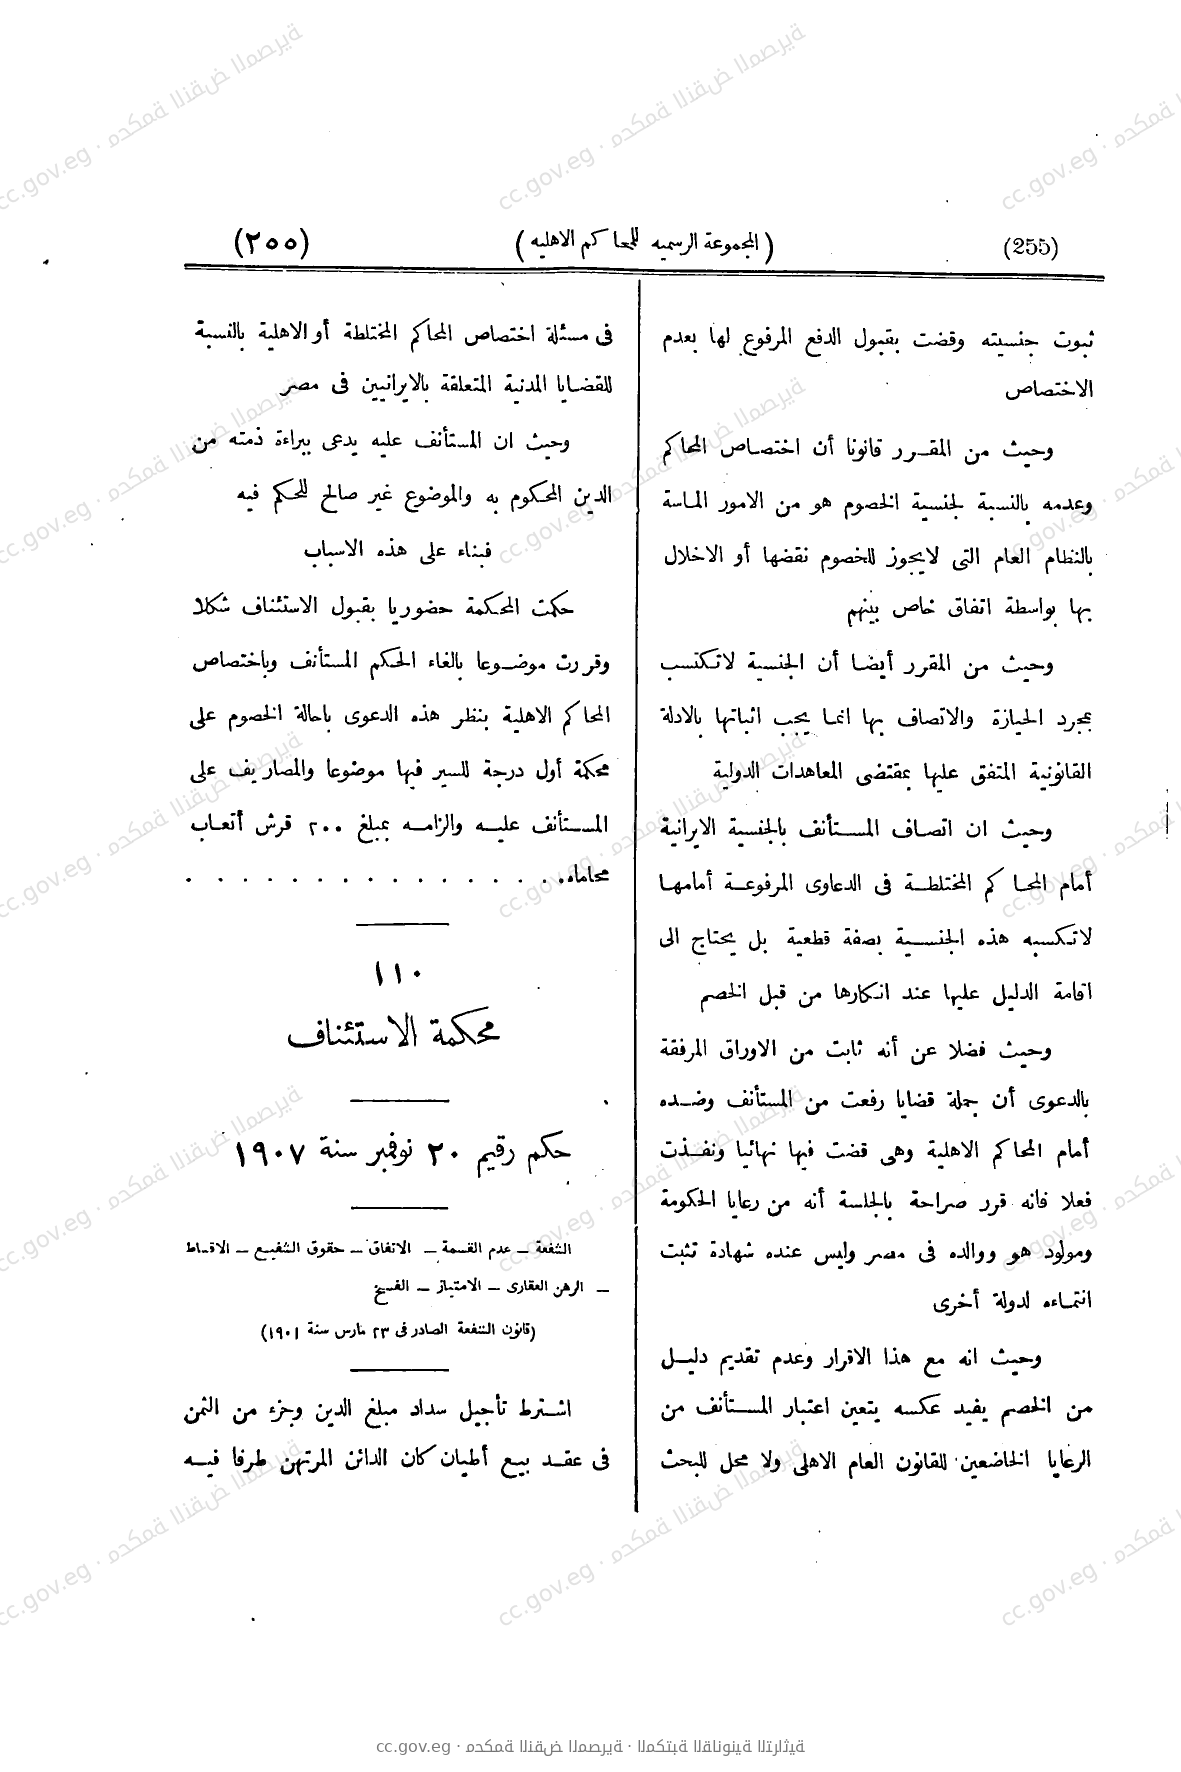 (255)
(المجموعة الرسميه للمحاكم الاهليه)
(٢٥٥)
ثبوت جنسيته وقضت بقبول الدفع المرفوع لها بعدم
الاختصاص
وحيث من المقرر قانونا أن اختصاص المحاكم
وعدمه بالنسبة لجنسية الخصوم هو من الامور الماسة
بالنظام العام التى لايجوز للخصوم نقضها أو الاخلال
بها بواسطة اتفاق خاص بينهم
وحيث من المقرر أيضا أن الجنسية لاتكتسب
بمجرد الحيازة والاتصاف بها انما يجب اثباتها بالادلة
القانونية المتفق عليها بمقتضى المعاهدات الدولية
وحيث ان اتصاف المستأنف بالجنسية الايرانية
أمام المحاكم المختلطة فى الدعاوى المرفوعة أمامها
لاتكسبه هذه الجنسية بصفة قطعية بل يحتاج الى
اقامة الدليل عليها عند انكارها من قبل الخصم
وحيث فضلا عن أنه ثابت من الاوراق المرفقة
بالدعوى أن جملة قضايا رفعت من المستأنف وضده
أمام المحاكم الاهلية وهى قضت فيها نهائيا ونفذت
فعلا فانه قرر صراحة بالجلسة أنه من رعايا الحكومة
ومولود هو ووالده فى مصر وليس عنده شهادة تثبت
انتماءه لدولة أخرى
وحيث انه مع هذا الاقرار وعدم تقديم دليل
من الخصم يفيد عكسه يتعين اعتبار المستأنف من
الرعايا الخاضعين للقانون العام الاهلى ولا محل للبحث
فى مسئلة اختصاص المحاكم المختلطة أو الاهلية بالنسبة
للقضايا المدنية المتعلقة بالايرانيين فى مصر
وحيث ان المستأنف عليه يدعى ببراءة ذمته من
الدين المحكوم به والموضوع غير صالح للحكم فيه
فبناء على هذه الاسباب
حكمت المحكمة حضوريا بقبول الاستئناف شكلا
وقررت موضوعا بالغاء الحكم المستأنف وباختصاص
المحاكم الاهلية بنظر هذه الدعوى باحالة الخصوم على
محكمة أول درجة للسير فيها موضوعا والمصاريف على
المستأنف عليه والزامه بمبلغ ٢٠٠ قرش أتعاب
محاماه. . . . . . . . . . . . . . . .
١١٠
محكمة الاستئناف
حكم رقيم ٢٠ نوفمبر سنة ١٩٠٧
الشفعة – عدم القسمة – الاتفاق – حقوق الشفيع – الاقساط
– الرهن العقارى – الامتياز – الفسخ
(قانون الشفعة الصادر فى ٢٣ مارس سنة ١٩٠١)
اشترط تأجيل سداد مبلغ الدين وجزء من الثمن
فى عقد بيع أطيان كان الدائن المرتهن طرفا فيه
cc.gov.eg · محكمة النقض المصرية · المكتبة القانونية التراثية